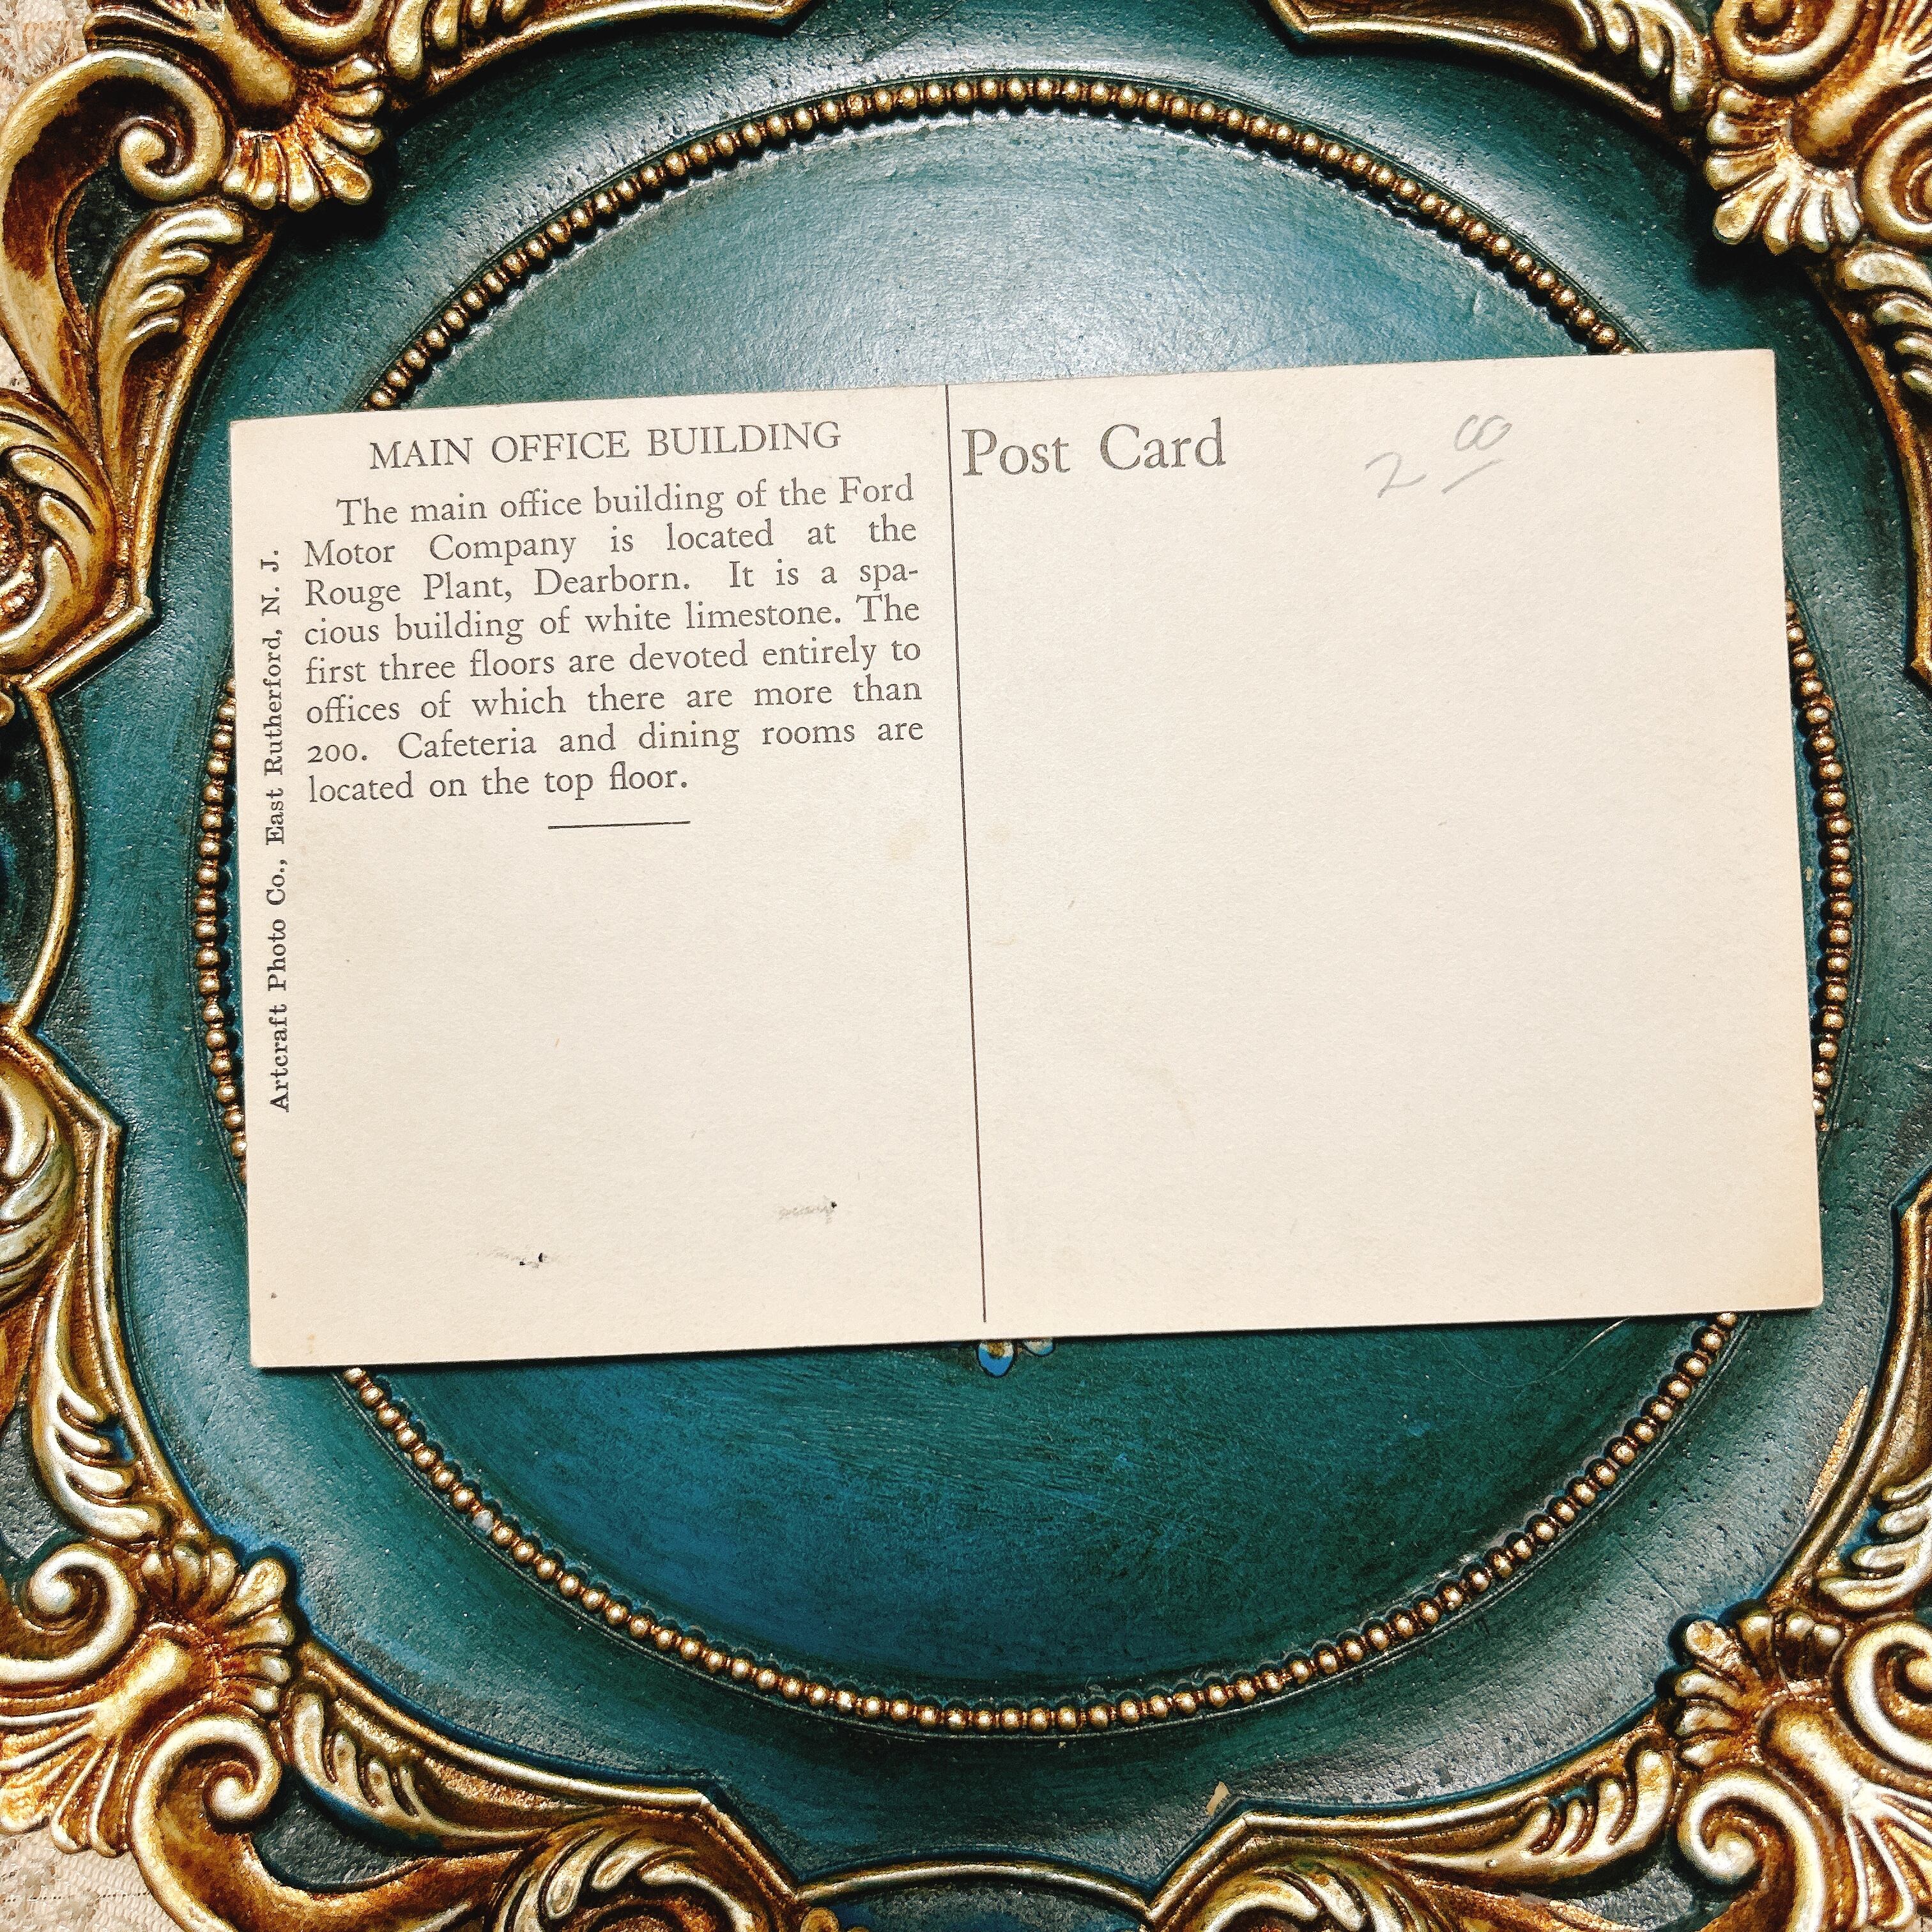 MAIN OFFICE BUILDING
The main office building of the Ford
Motor Company is located at the
Rouge Plant, Dearborn. It is a spa-
cious building of white limestone. The
first three floors are devoted entirely to
offices of which there are more than
200. Cafeteria and dining rooms are
located on the top floor.
Artcraft Photo Co., East Rutherford, N. J.
Post Card
2 00